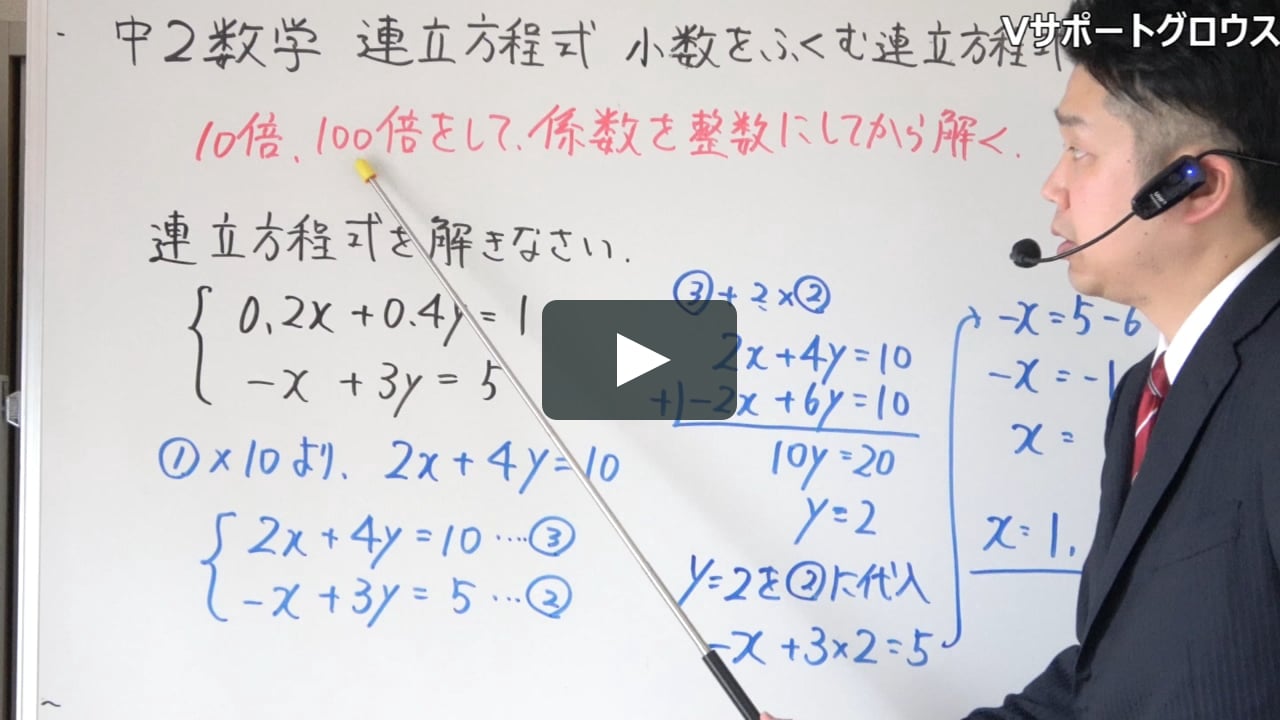 中2数学 連立方程式 小数をふくむ連立方程式
Vサポートグロウス
10倍、100倍をして、係数を整数にしてから解く.
連立方程式を解きなさい.
0.2x+0.4y=1
-x+3y=5
①×10より、2x+4y=10
2x+4y=10…③
-x+3y=5…②
③+2×②
2x+4y=10
+)-2x+6y=10
10y=20
y=2
y=2を②に代入
-x+3×2=5
-x=5-6
-x=-1
x=
x=1,